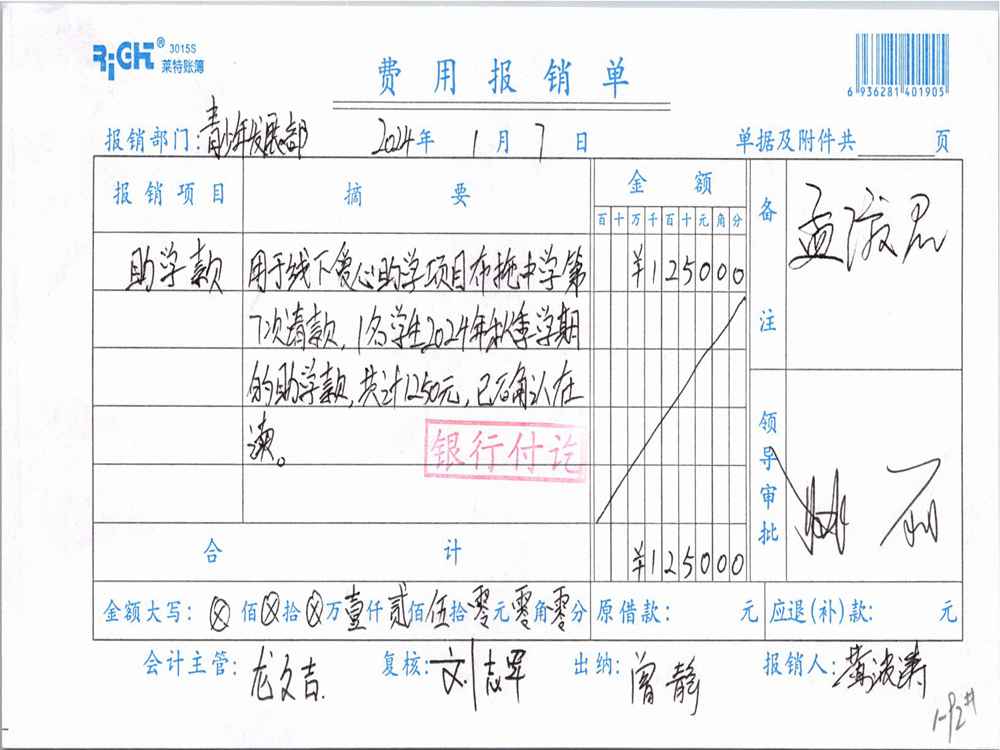 RiGHT® 3015S
莱特账簿
费用报销单
6 936281 401905
报销部门:青少年发展部 2024年1月7日 单据及附件共 页
报销项目 摘要 金额 备注
百十万千百十元角分
助学款 用于线下爱心助学项目布拖中学第 ¥125000
7次请款,1名学生2024年秋季学期
的助学款,共计1250元,已确认在
读。
银行付讫
领导审批
合计 ¥125000
金额大写:⊗佰⊗拾⊗万壹仟贰佰伍拾零元零角零分 原借款: 元 应退(补)款: 元
会计主管:龙文吉 复核:文志军 出纳:曾静 报销人:黄波涛